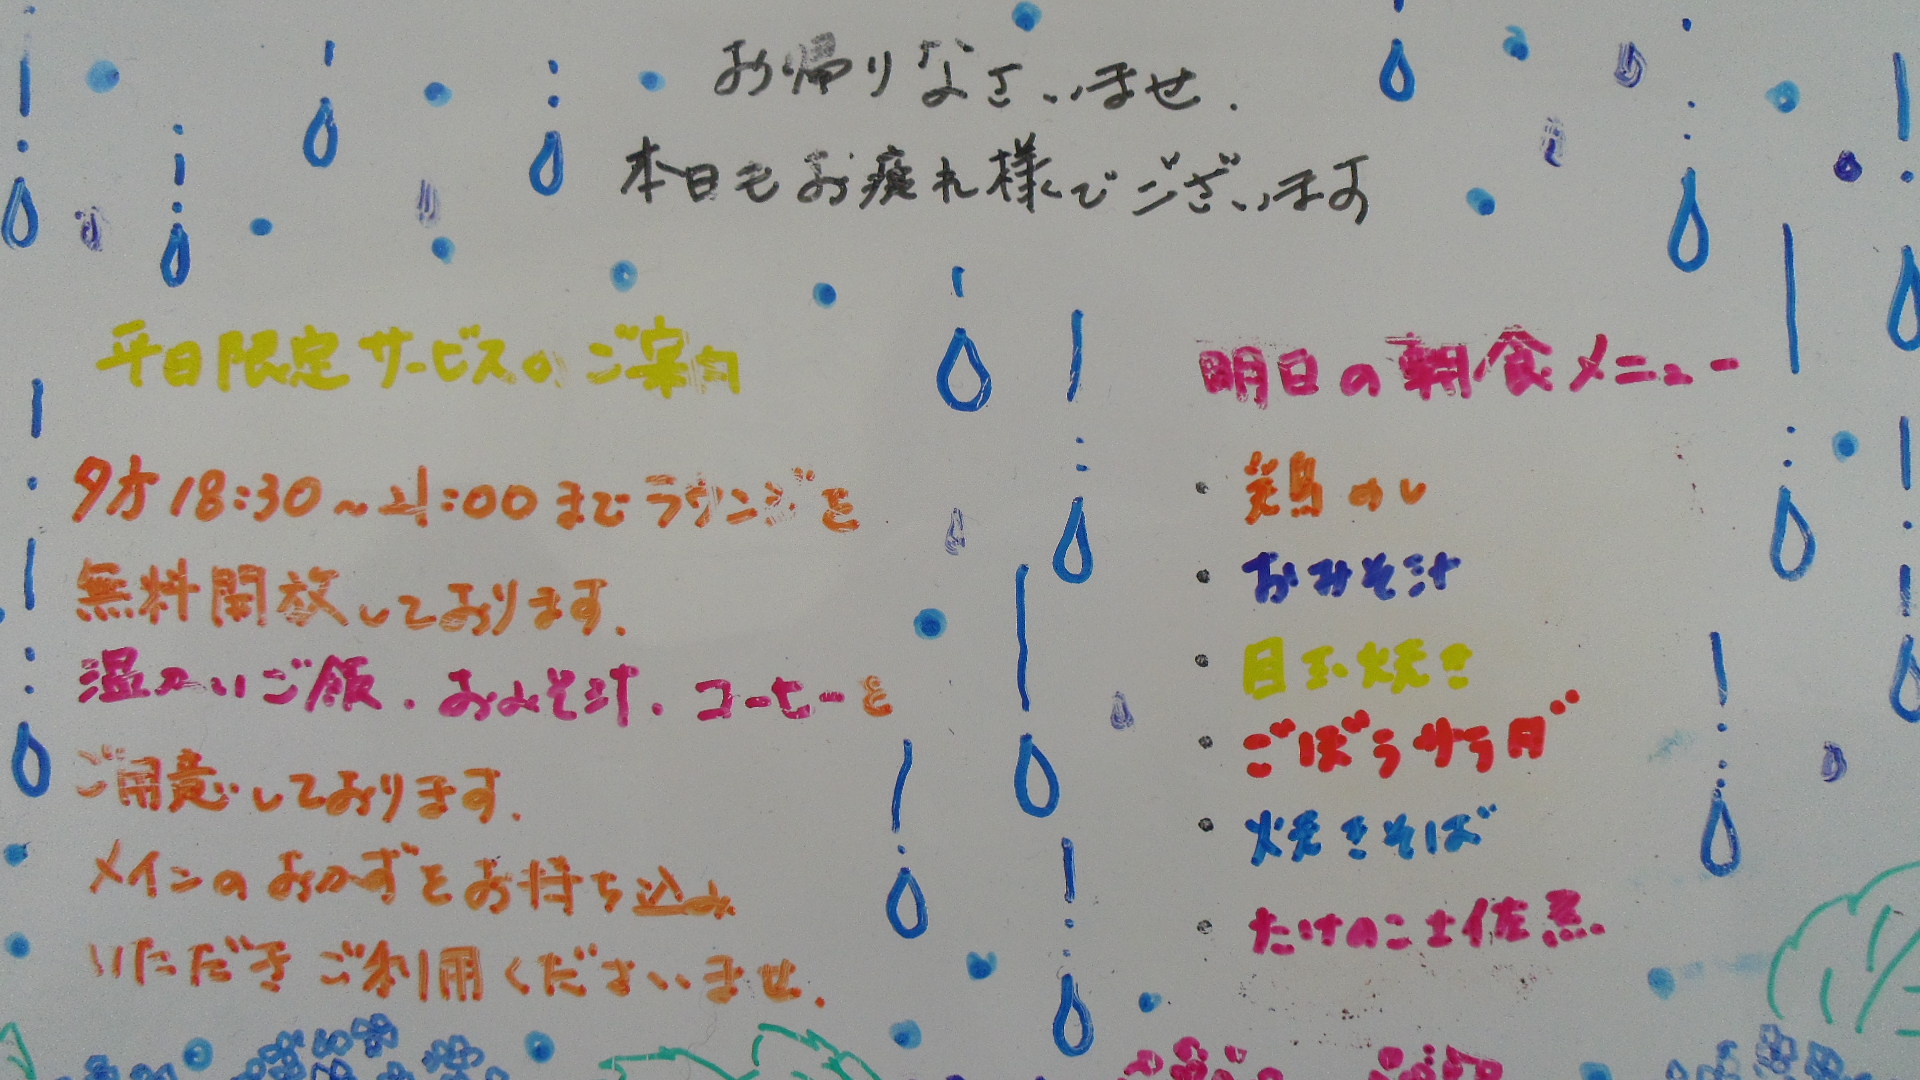 お帰りなさいませ.
本日もお疲れ様でございます
平日限定サービスのご案内
夕方18:30~21:00までラウンジを
無料開放しております.
温かいご飯.おみそ汁.コーヒーを
ご用意しております.
メインのおかずをお持ち込み
いただきご利用くださいませ.
明日の朝食メニュー
・鶏めし
・おみそ汁
・目玉焼き
・ごぼうサラダ
・焼きそば
・たけのこ土佐煮.